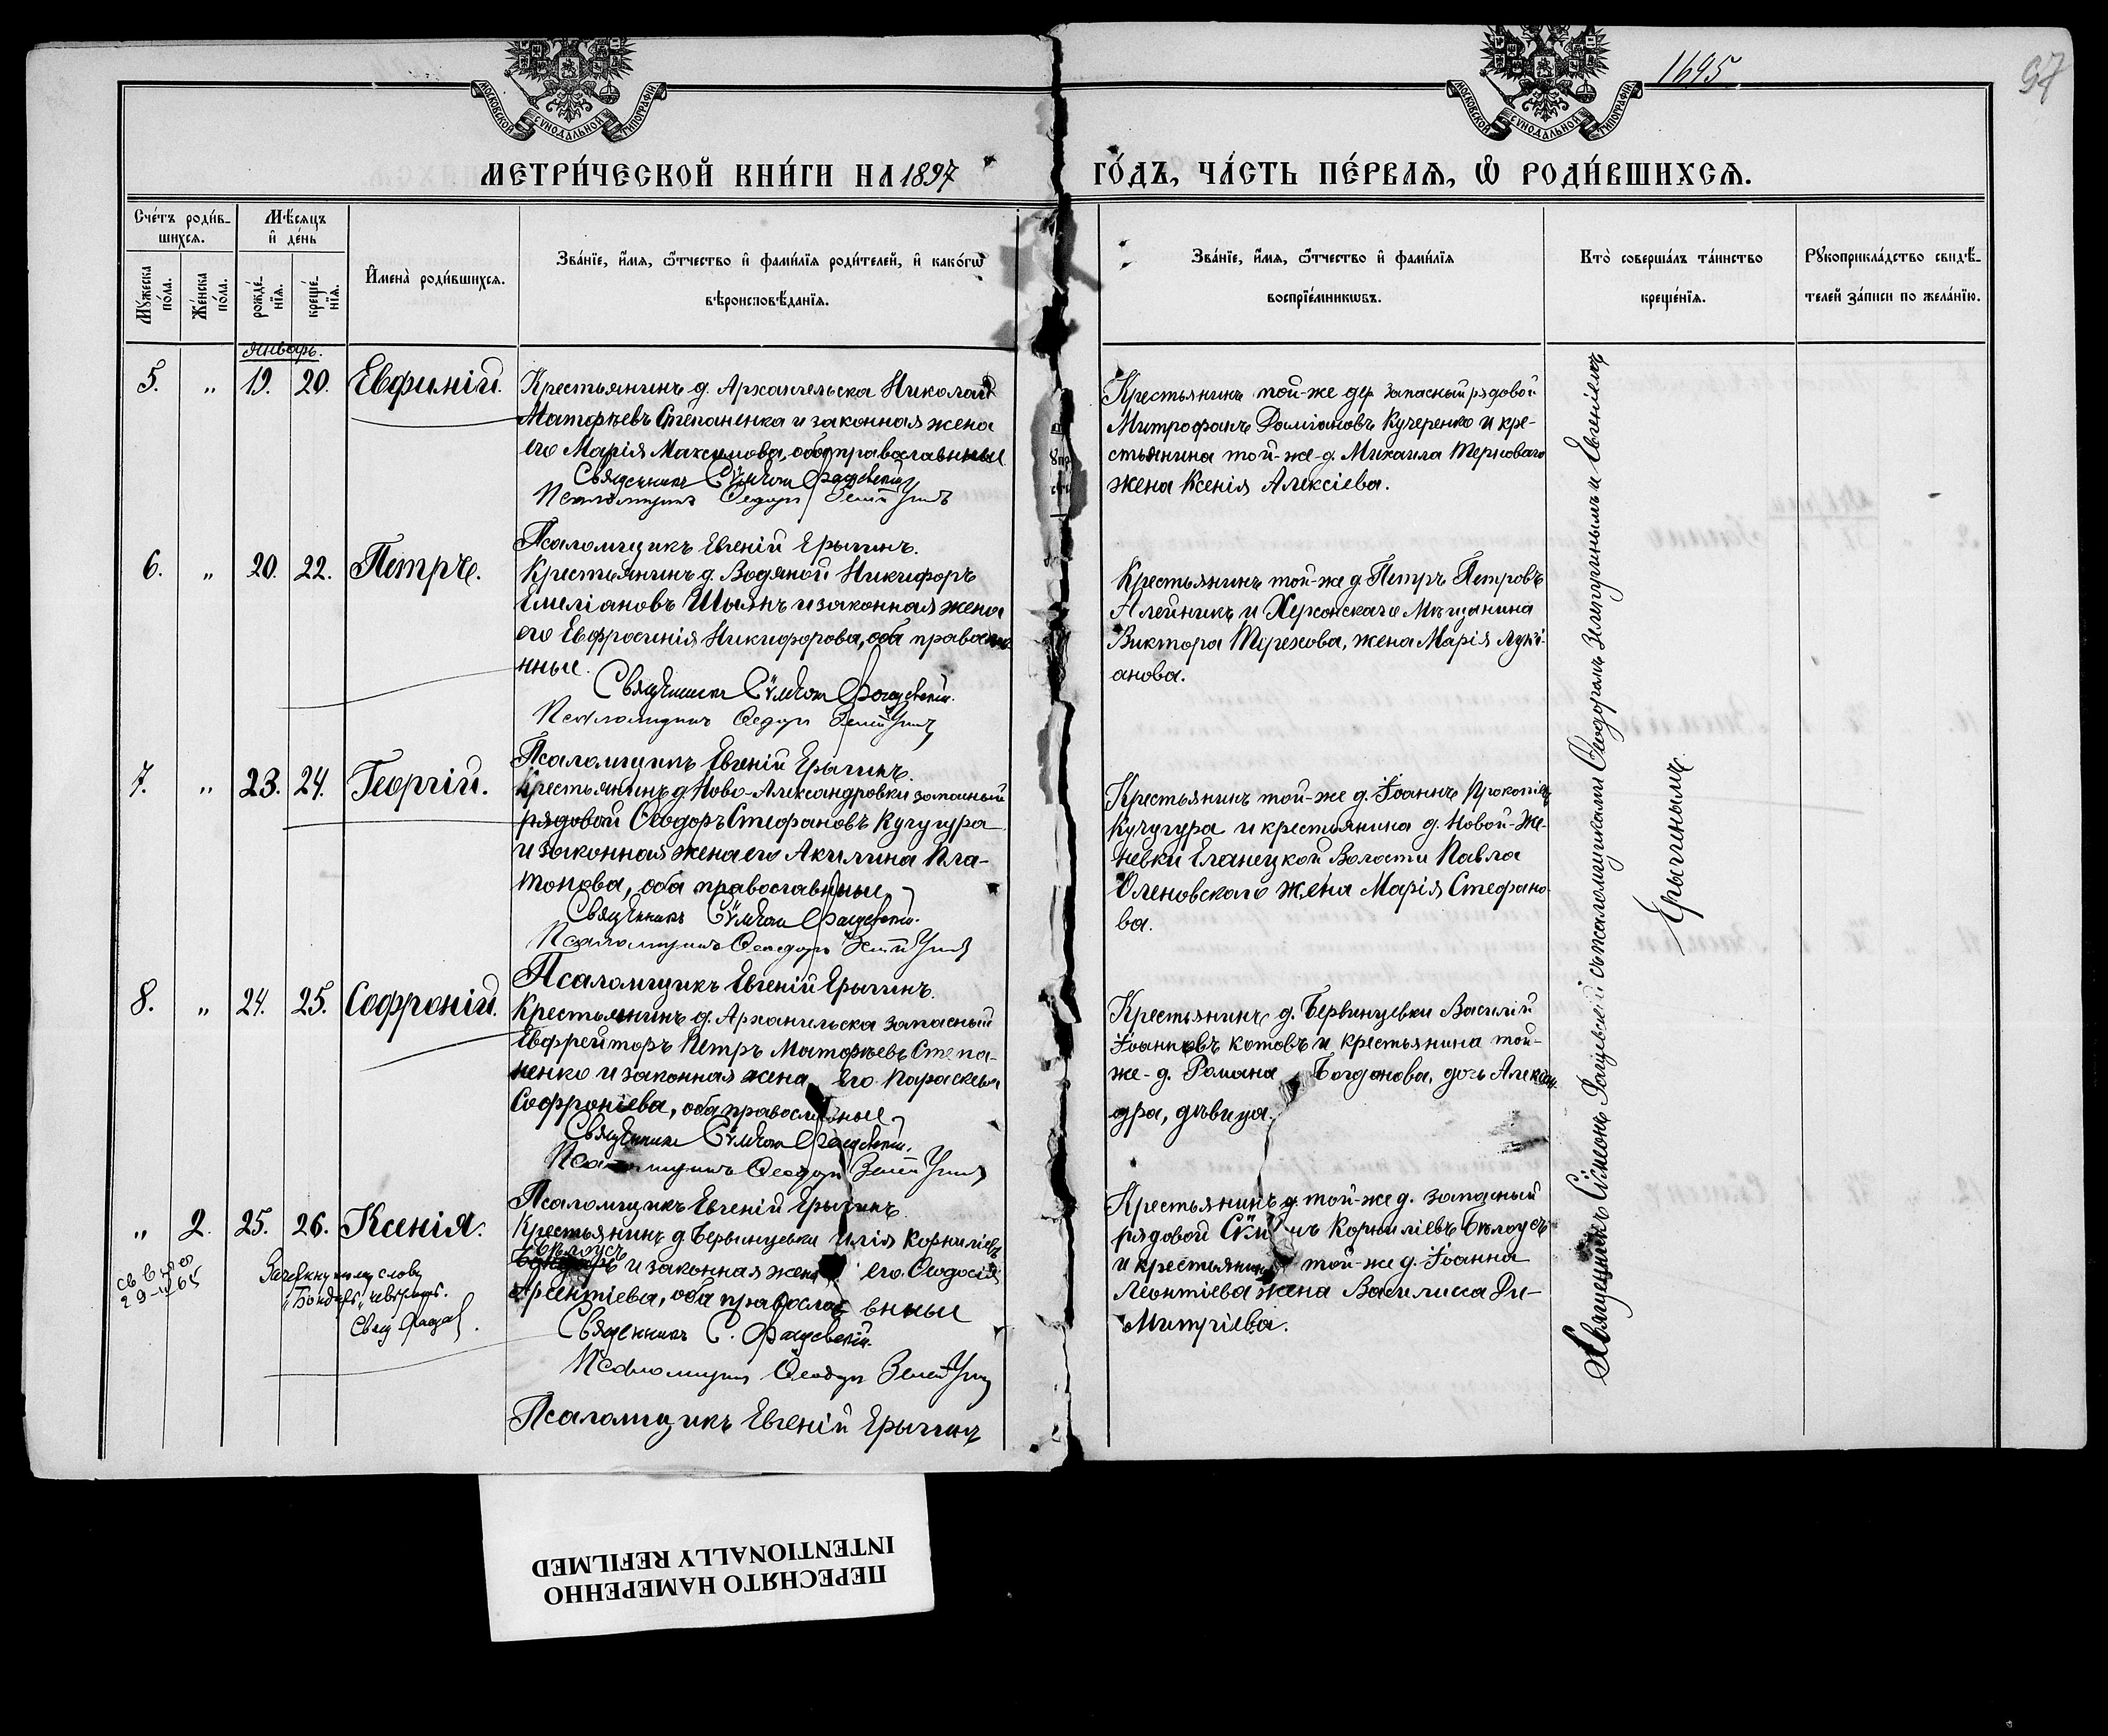 1695
97
МОСКОВСКОЙ СУНОДАЛЬНОЙ ТИПОГРАФІИ
МОСКОВСКОЙ СУНОДАЛЬНОЙ ТИПОГРАФІИ
МЕТРИ́ЧЕСКОЙ КНИ́ГИ НА 1897
ГО́ДЪ, ЧА́СТЬ ПЕ́РВАѦ, Ѡ҆ РОДИ́ВШИХСѦ.
Сче́тъ роди́в-
шихсѧ.
Мꙋ́жеска
по́ла.
Же́нска
по́ла.
Мѣ́сѧцъ
и҆ де́нь
рожде́-
нїѧ.
креще́-
нїѧ.
И҆мена̀ роди́вшихсѧ.
Зва́нїе, и҆́мѧ, ѻ҆́тчество и҆ фами́лїѧ роди́телей, и҆ како́гѡ
вѣроисповѣ́данїѧ.
Зва́нїе, и҆́мѧ, ѻ҆́тчество и҆ фами́лїѧ
воспрїе́мникѡвъ.
Кто̀ соверша́лъ та́инство
креще́нїѧ.
Рꙋкоприкла́дство свидѣ́-
телей за́писи по жела́нїю.
Январь.
5. „ 19. 20. Евфимій.
Крестьянинъ д. Архангельска Николай
Матѳѣевъ Степаненка и законная жена
его Марія Максимова, оба православные
Священникъ Сѵмеонъ Фащевскій
Псаломщикъ Ѳедоръ
Псаломщикъ Евгеній Ерыгинъ.
Крестьянинъ той-же дер запасный рядовой
Митрофанъ Даміановъ Кучеренко и кре-
стьянина той-же-д. Михаила Терноваго
жена Ксенія Алексіева.
6. „ 20. 22. Петръ.
Крестьянинъ д. Водяной Никифоръ
Емиліановъ Шыянъ и законная жена
его Евфросинія Никифорова, оба правосла-
нные.
Священникъ Сѵмеонъ Фащевскій.
Псаломщикъ Ѳедоръ
Псаломщикъ Евгеній Ерыгинъ.
Крестьянинъ той-же д Петръ Петровъ
Алейникъ и Херсонскаго Мѣщанина
Виктора Терехова, жена Марія Лукі-
анова.
7. „ 23. 24. Георгій.
Крестьянинъ д. Ново-Александровки запасный
рядовой Ѳеодоръ Стефановъ Кучугура
и законная жена его Акилина Пла-
тонова, оба православные
Священникъ Сѵмеонъ Фащевскій.
Псаломщикъ Ѳеодоръ
Псаломщикъ Евгеній Ерыгинъ.
Крестьянинъ той-же д. Іоаннъ Прокопіевъ
Кучугура и крестьянина д. Новой-Же-
невки Еланецкой Волости Павла
Оленовскаго жена Марія Стефано-
ва.
8. „ 24. 25. Софроній.
Крестьянинъ д. Архангельска запасный
Евфрейторъ Петръ Матѳѣевъ Степа-
ненко и законная жена его Параскева
Софроніева, оба православные
Священникъ Сѵмеонъ Фащевскій.
Псаломщикъ Ѳеодоръ
Псаломщикъ Евгеній Ерыгинъ.
Крестьянинъ д. Бервинцевки Василій
Іоанновъ Котовъ и крестьянина той-
же-д. Романа Богданова, дочь Алексан-
дра, дѣвица.
„ 2. 25. 26. Ксенія.
29
65
Зачеркнутому слову
„Бондарь“ не вѣрить.
Свящ Фащев
Крестьянинъ д Бервинцевки Илія Корниліевъ
Бѣлоусъ
и законная жена его Ѳеодосія
Арсентіева, оба православные
Священникъ С. Фащевскій.
Псаломщикъ Ѳеодоръ
Псаломщикъ Евгеній Ерыгинъ
Крестьянинъ д. той-же д. запасный
рядовой Сѵмеонъ Корниліевъ Бѣлоусъ
и крестьянина той-же д. Іоанна
Леонтіева жена Василисса Ди-
митріева.
Священникъ Сѵмеонъ Фащевскій съ псаломщиками Ѳеодоромъ и Евгеніемъ
Ерыгинымъ.
ПЕРЕСНЯТО НАМЕРЕННО
INTENTIONALLY REFILMED